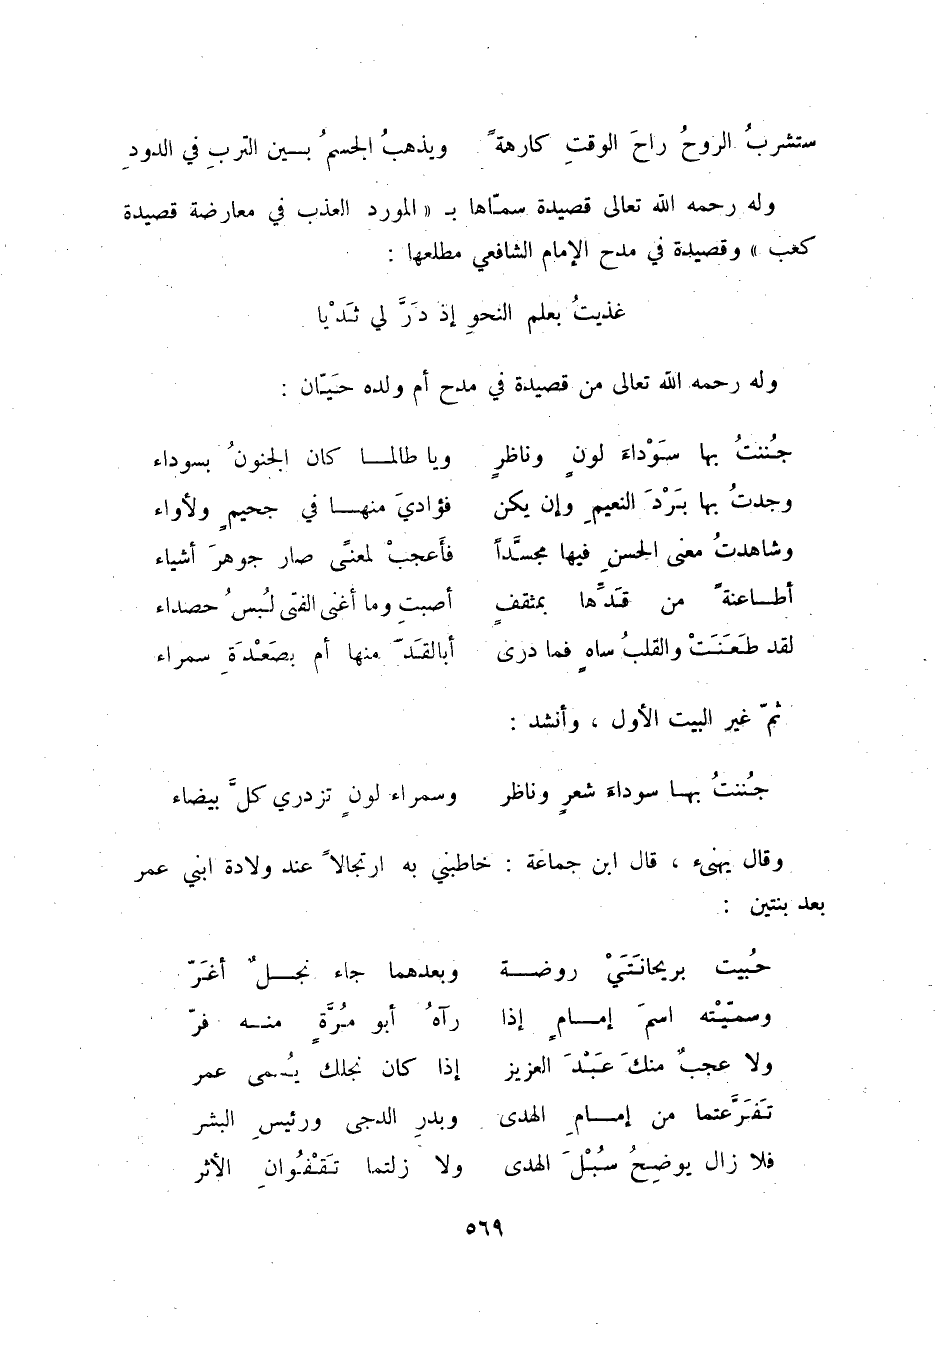 ستشربُ الروحُ راحَ الوقتِ كارهةً ويذهبُ الجسمُ بــين التربِ في الدودِ
وله رحمه الله تعالى قصيدة سمّاها بـ « المورد العذب في معارضة قصيدة
كعب » وقصيدة في مدح الإمام الشافعي مطلعها :
غذيتُ بعلم النحوِ إذ دَرَّ لي ثَدْيا
وله رحمه الله تعالى من قصيدة في مدح أم ولده حَيّان :
جُننتُ بها سَوْداءَ لونٍ وناظرٍ ويا طالمــا كان الجنونُ بسوداء
وجدتُ بها بَرْدَ النعيمِ وإن يكن فؤاديَ منهــا في جحيمٍ ولأواء
وشاهدتُ معنى الحسنِ فيها مجسَّداً فأَعجبْ لمعنًى صار جوهرَ أشياء
أطــاعنةً من قَدِّها بمثقفٍ أصبتِ وما أغنى الفتى لُبسُ حصداء
لقد طَعَنَتْ والقلبُ ساهٍ فما درى أبالقَدّ منها أم بصَعْدَةِ سمراء
ثمّ غير البيت الأول ، وأنشد :
جُننتُ بهــا سوداءَ شعرٍ وناظر وسمراء لونٍ تزدري كلَّ بيضاء
وقال يهنىء ، قال ابن جماعة : خاطبني به ارتجالاً عند ولادة ابني عمر
بعد بنتين :
حُبيت بريحانَتَيْ روضــة وبعدهما جاء نجــلٌ أغَرّ
وسميّته اسمَ إمــامٍ إذا رآهُ أبو مُرَّةٍ منــه فرّ
ولا عجبٌ منكَ عَبْدَ العزيز إذا كان نجلك يُسمى عمر
تَفَرَّعتما من إمــامِ الهدى وبدرِ الدجى ورئيسِ البشر
فلا زال يوضحُ سُبْلَ الهدى ولا زلتما تَقْفُوانِ الأثر
٥٦٩